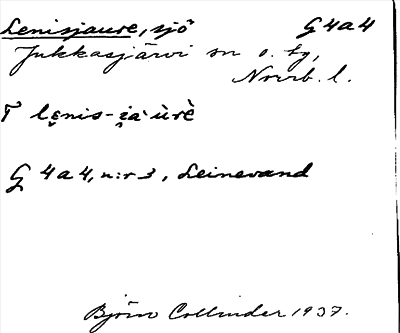 Lenisjaure, sjö G4a4
Jukkasjärvi sn o. tg,
Norrb. l.
G 4a4, n:r 3, Leinevand
Björn Collinder 1937.